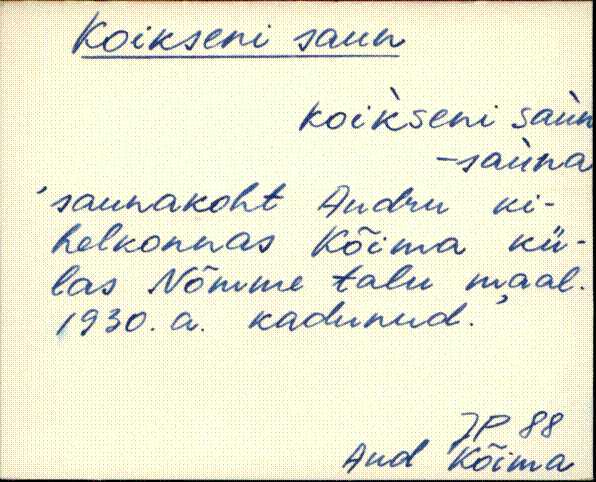 Koikseni saun
koi̇̀kseni saùn
-saùna
'saunakoht Audru ki-
helkonnas Kõima kü-
las Nõmme talu maal.
1930. a. kadunud.'
JP 88
Aud Kõima